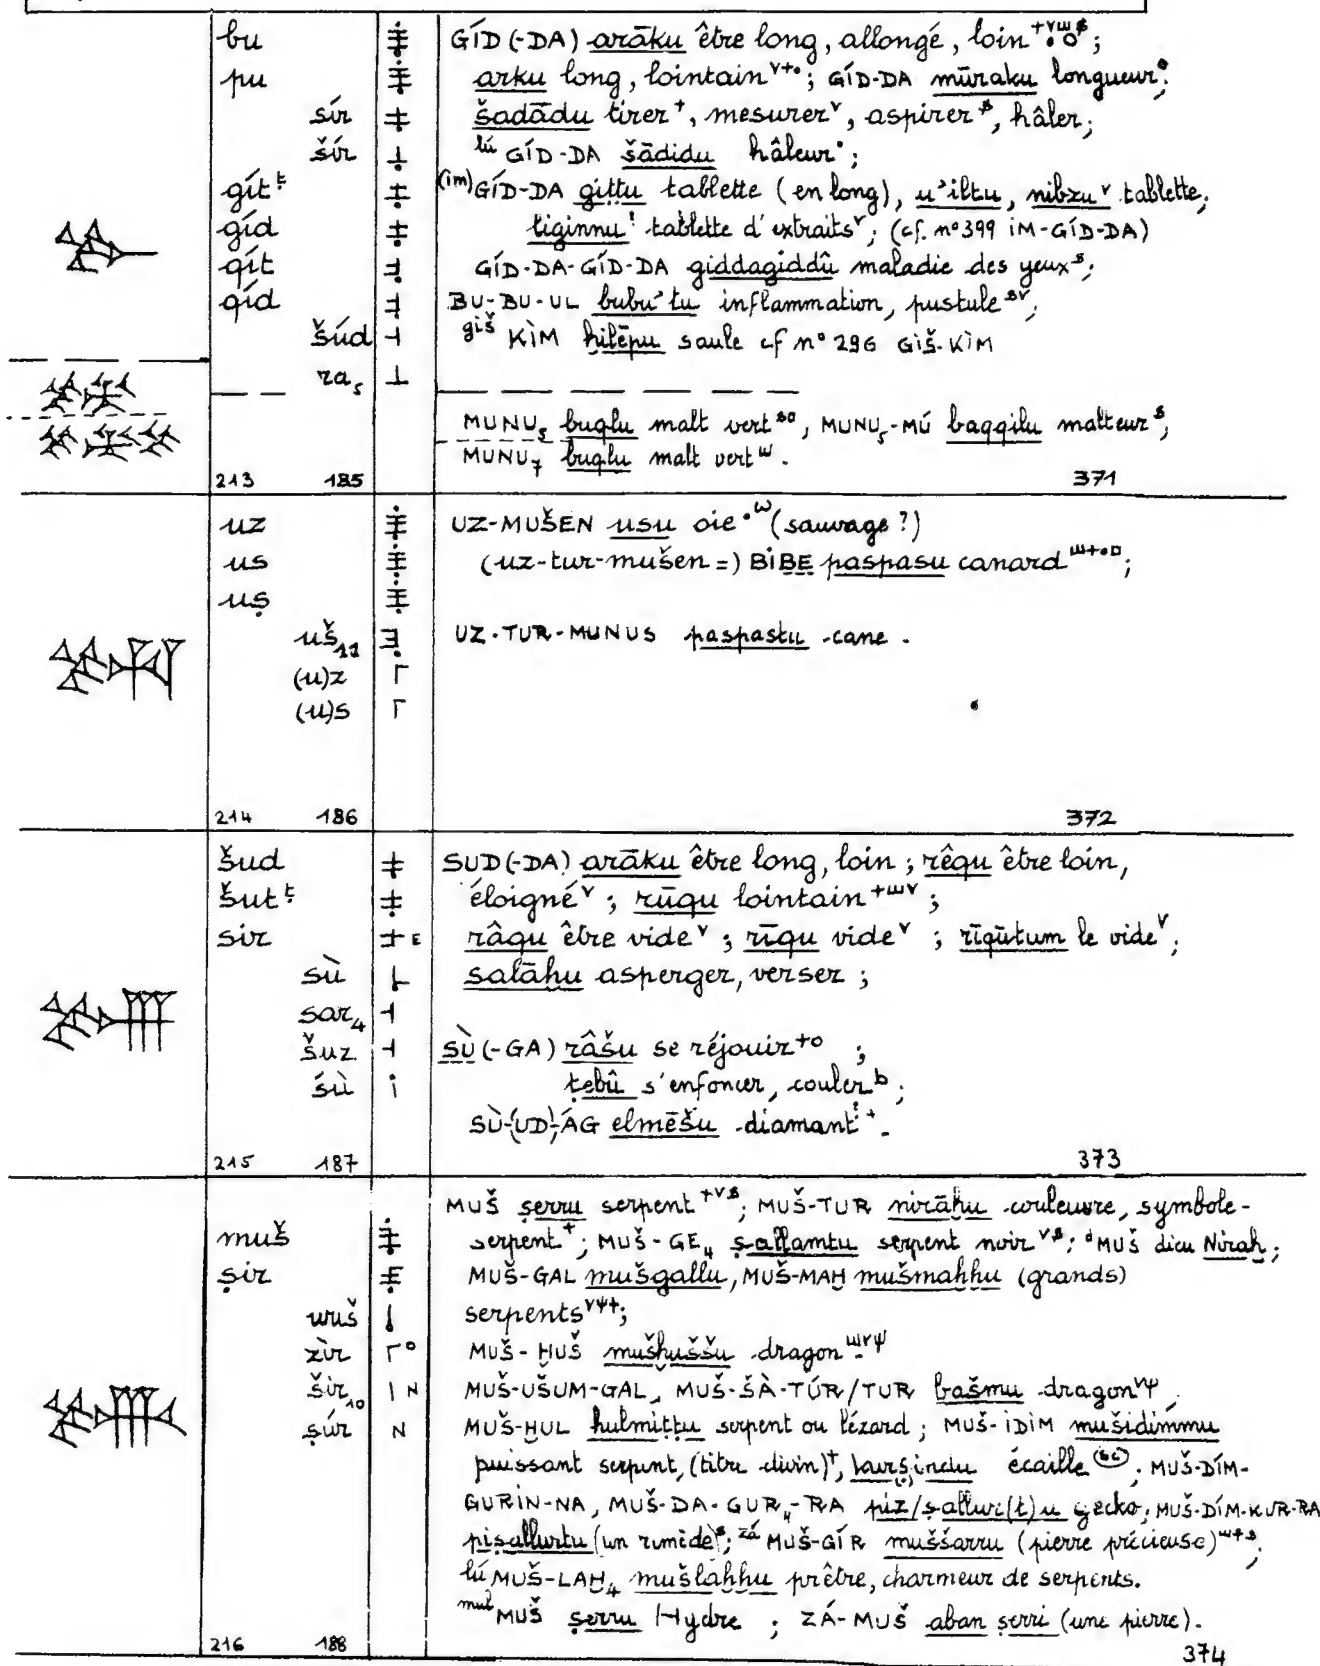 bu GÍD (-DA) arāku être long, allongé, loin ;
pu arku long, lointain ; GÍD-DA mūraku longueur ;
sír šadādu tirer, mesurer, aspirer, hâler ;
šír lú GÍD-DA šādidu hâleur ;
gít (im) GÍD-DA giṭṭu tablette (en long), u'iltu, nibzu tablette,
gíd liginnu tablette d'extraits ; (cf. n° 399 IM-GÍD-DA)
qít GÍD-DA-GÍD-DA giddagiddû maladie des yeux ;
qíd BU-BU-UL bubu'tu inflammation, pustule ;
šúd giš KÌM ḫilēpu saule cf n° 296 GIŠ-KÌM
ra₅
MUNU₅ buqlu malt vert, MUNU₅-MÚ baqqilu malteur ;
MUNU₇ buqlu malt vert.
213 185 371
uz UZ-MUŠEN usu oie (sauvage ?)
us (uz-tur-mušen =) BIBE paspasu canard ;
uṣ
uš₁₁ UZ-TUR-MUNUS paspastu cane.
(u)z
(u)s
214 186 372
šud SUD (-DA) arāku être long, loin ; rêqu être loin,
šut éloigné ; rūqu lointain ;
sir E râqu être vide ; rīqu vide ; rīqūtum le vide ;
sù salāhu asperger, verser ;
sar₄
šuz SÙ (-GA) râšu se réjouir ;
śù ṭebû s'enfoncer, couler ;
SÙ-(UD)-ÁG elmēšu diamant.
215 187 373
MUŠ ṣerru serpent ; MUŠ-TUR nirāḫu couleuvre, symbole-
muš serpent ; MUŠ-GE₄ ṣallamtu serpent noir ; d MUŠ dieu Niraḫ ;
ṣir MUŠ-GAL mušgallu, MUŠ-MAḪ mušmaḫḫu (grands)
wuš serpents ;
zìr MUŠ-ḪUŠ mušḫuššu dragon
šir₁₀ N MUŠ-UŠUM-GAL, MUŠ-ŠÀ-TÙR/TUR bašmu dragon,
ṣúr N MUŠ-ḪUL ḫulmiṭṭu serpent ou lézard ; MUŠ-IDIM mušidimmu
puissant serpent, (titre divin), écaille ; MUŠ-DÍM-
GURIN-NA, MUŠ-DA-GUR₄-RA piz/ṣallur(t)u gecko ; MUŠ-DÍM-KUR-RA
piṣallurtu (un remède) ; zá MUŠ-GÍR muššarru (pierre précieuse) ;
lú MUŠ-LAḪ₄ mušlaḫḫu prêtre, charmeur de serpents.
mul MUŠ ṣerru Hydre ; ZÁ-MUŠ aban ṣerri (une pierre).
216 188 374